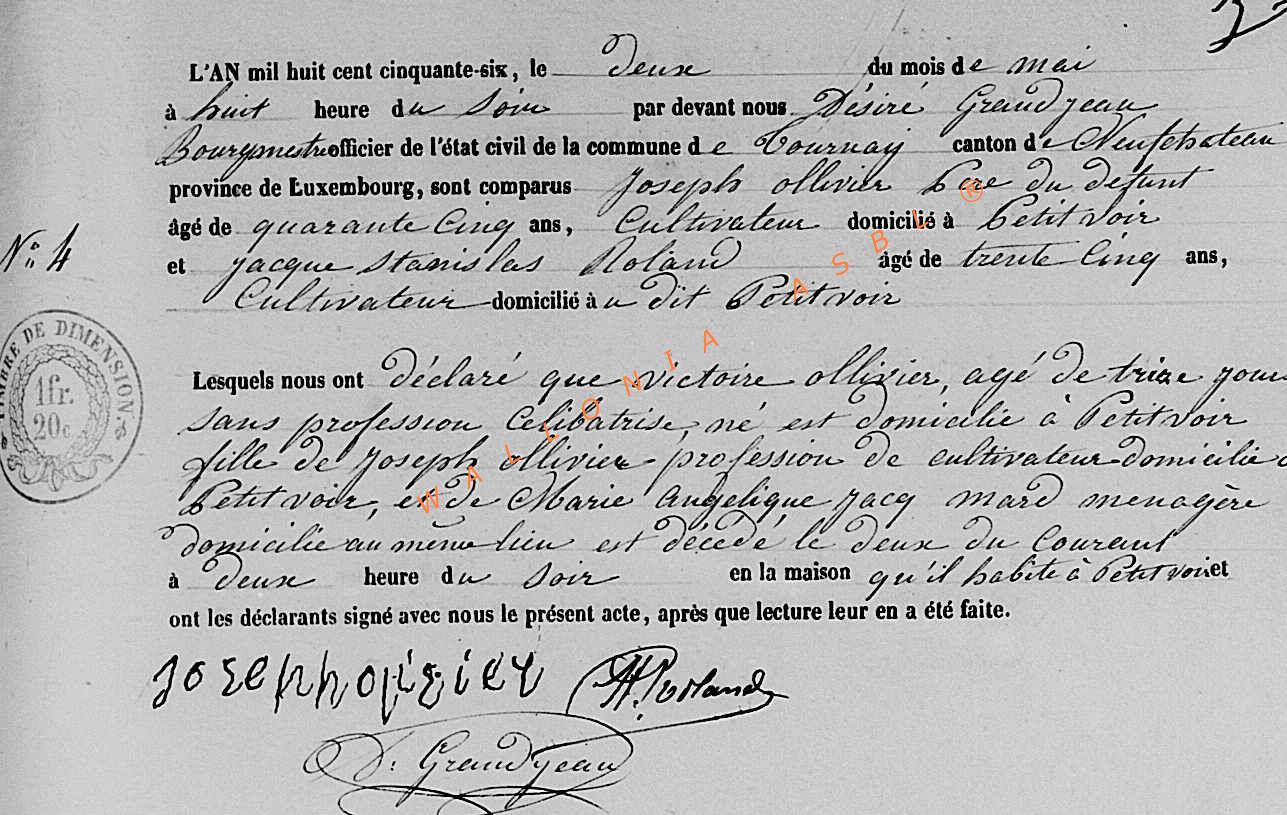 L'AN mil huit cent cinquante-six, le deux du mois de mai
à huit heure du Soir par devant nous Désiré Grandjean
Bourgmestre officier de l'état civil de la commune de Tournay canton de Neufchateau
province de Luxembourg, sont comparus Joseph ollivier Pere du defunt
âgé de quarante Cinq ans, Cultivateur domicilié à Petitvoir
N° 4
et Jacque Stanislas Roland âgé de trente Cinq ans,
Cultivateur domicilié à u dit Petitvoir
TIMBRE DE DIMENSION.
1fr.
20c.
Lesquels nous ont déclaré que victoire ollivier, agé de trize jour
sans profession Celibatrise, né est domicilie à Petitvoir
fille de Joseph ollivier profession de cultivateur domicilie
Petitvoir, et de Marie Angelique Jacq mard menagère
domicilie au même lieu est décédé le deux du Courant
à deux heure du Soir en la maison qu'il habite à Petitvoir et
ont les déclarants signé avec nous le présent acte, après que lecture leur en a été faite.
Roland
D: Grandjean
WALLONIA ASBL ®